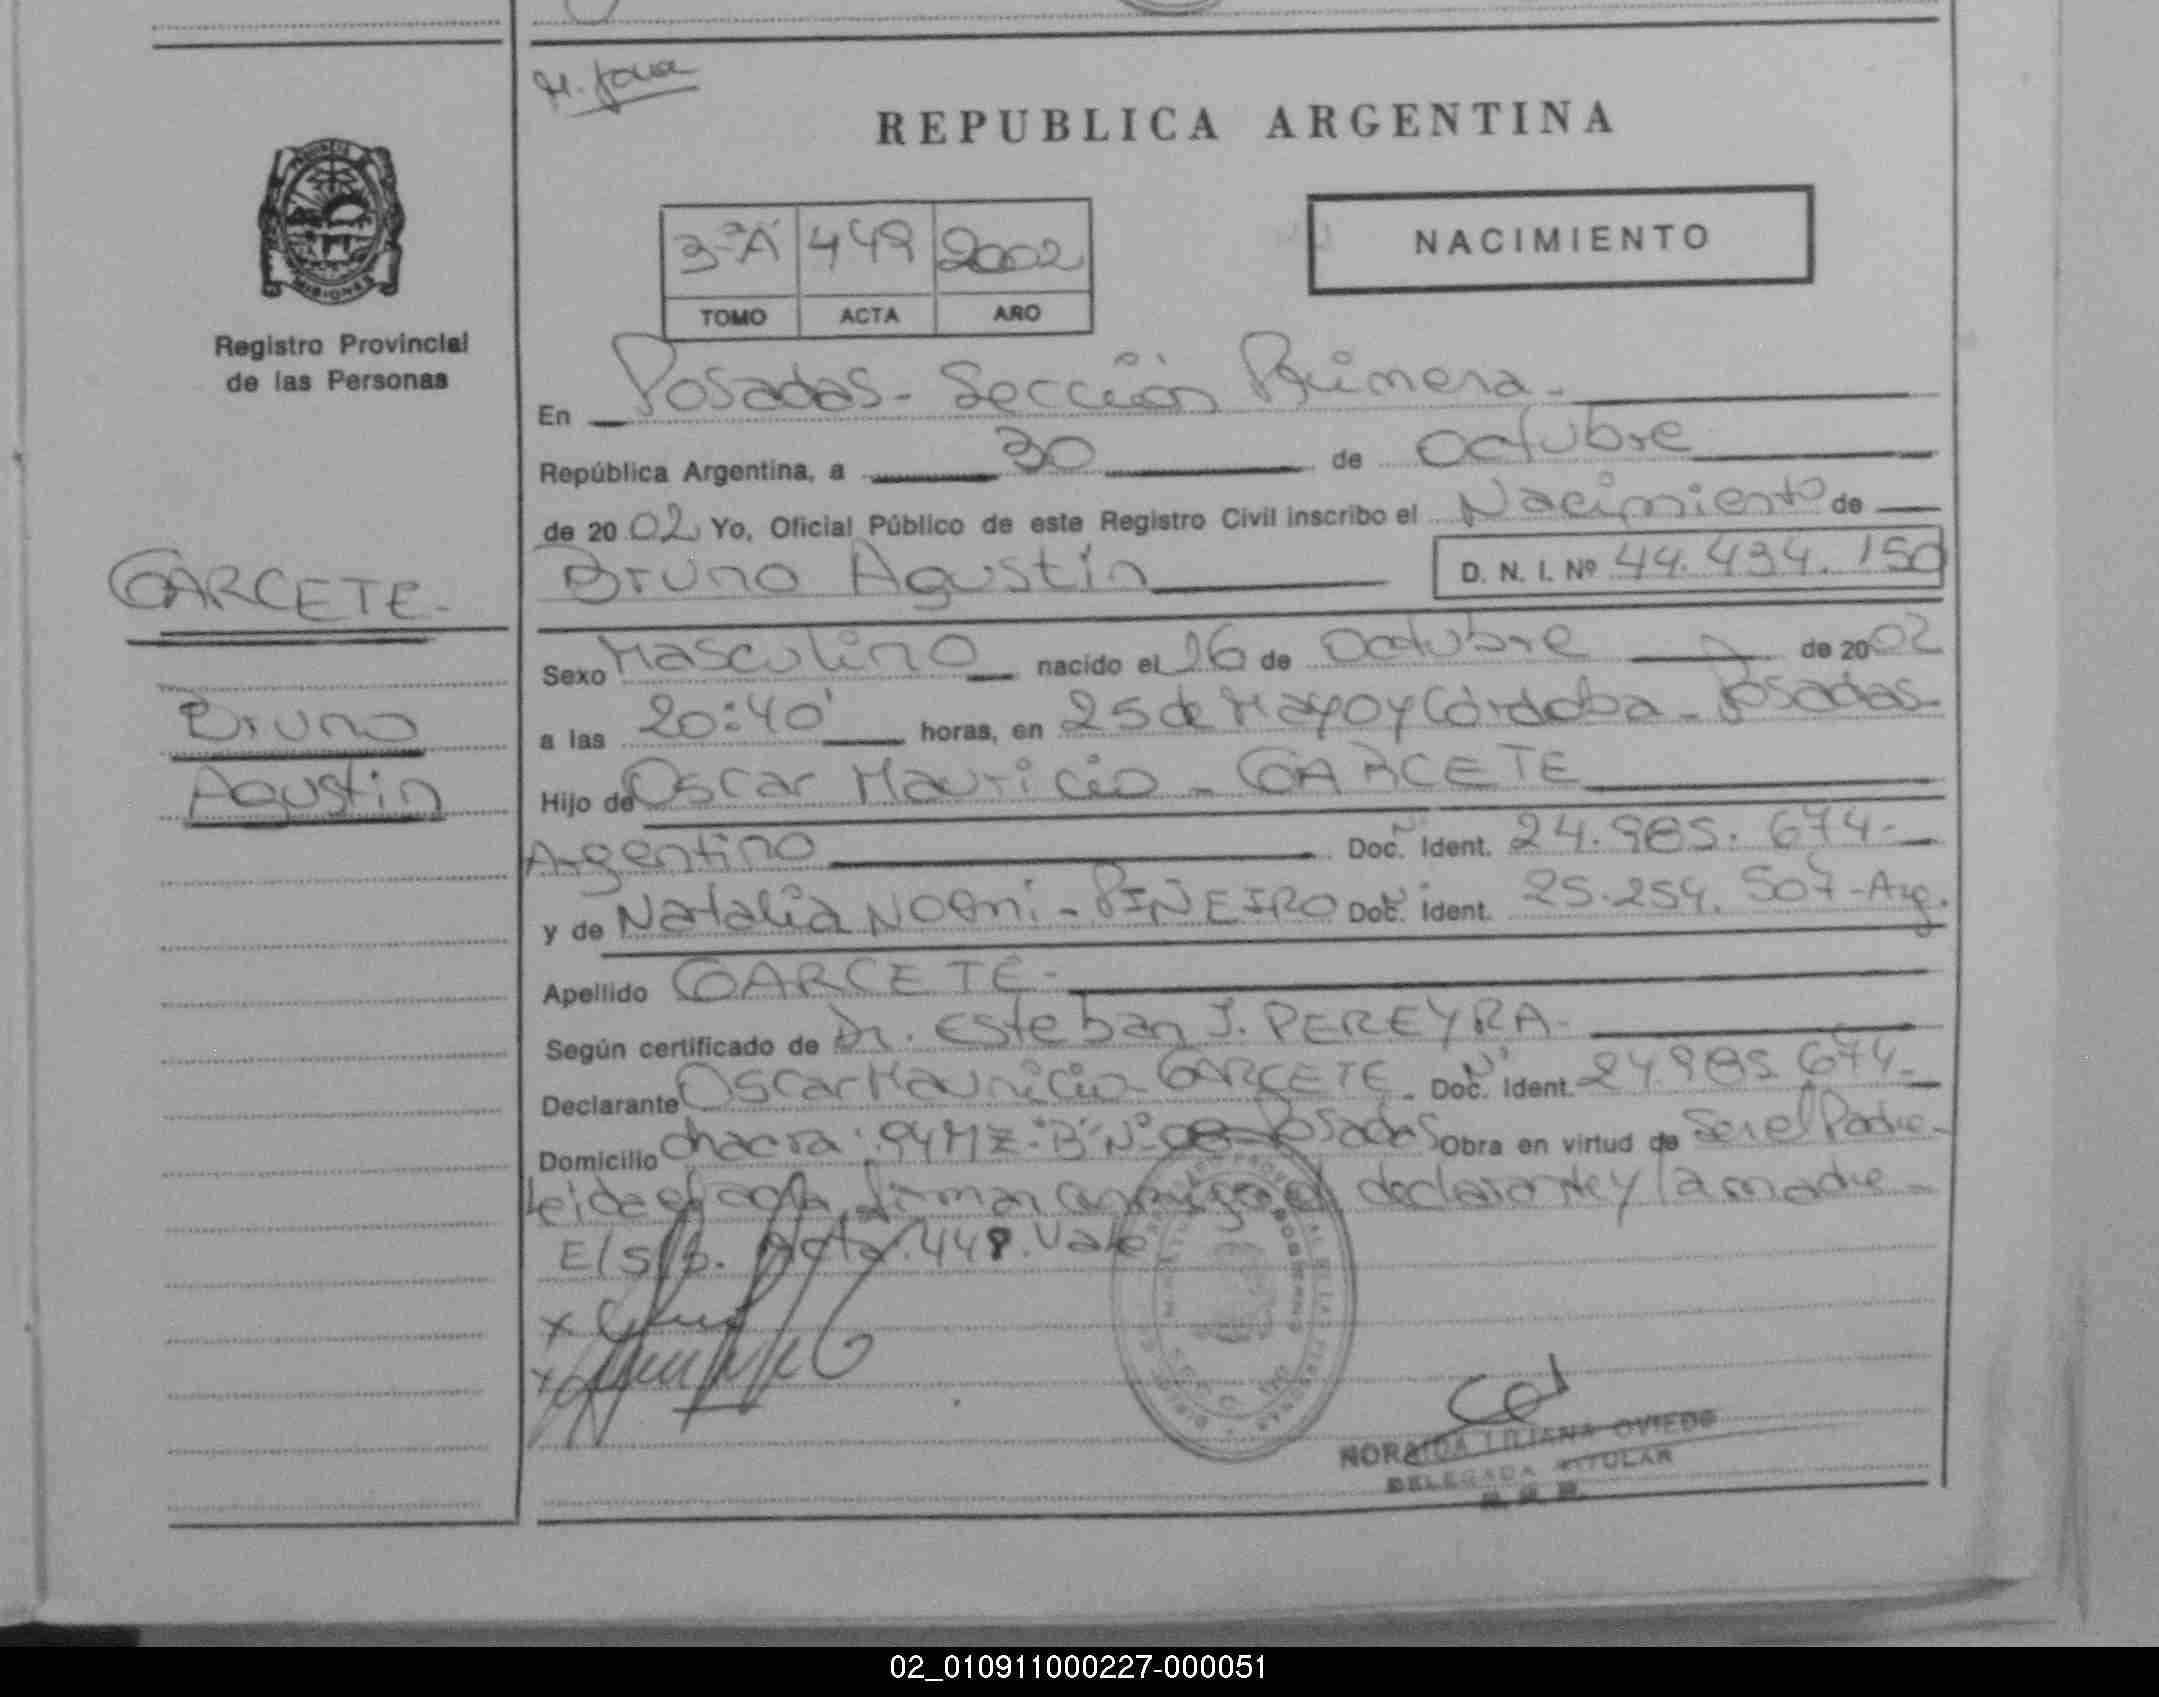 REPUBLICA ARGENTINA
NACIMIENTO
3-ªA 449 2002
TOMO ACTA AÑO
PROVINCIA DE
MISIONES
Registro Provincial
de las Personas
En Posadas - Sección Primera -
República Argentina, a 30 de Octubre
de 2002 Yo, Oficial Público de este Registro Civil inscribo el Nacimiento de
Bruno Agustin D. N. I. Nº 44.494.150
GARCETE -
Bruno
Agustin
Sexo Masculino nacido el 26 de Octubre de 2002
a las 20:40' horas, en 25 de Mayo y Córdoba - Posadas -
Hijo de Oscar Mauricio - GARCETE
Argentino Doc. Ident. 24.985.674 -
y de Natalia Noemi - PIÑEIRO Doc. Ident. 25.254.507 - Arg.
Apellido GARCETE -
Según certificado de Dr. Esteban J. PEREYRA -
Declarante Oscar Mauricio GARCETE - Doc. Ident. 24.985.674 -
Domicilio chacra: 94 MZ: "B" Nº 08 - Posadas Obra en virtud de Ser el Padre -
Leida el acta, firman conmigo el declarante y la madre -
E/s/b. Acta: 449. Vale
x
x
NORAIDA LILIANA OVIEDO
DELEGADA TITULAR
02_010911000227-000051